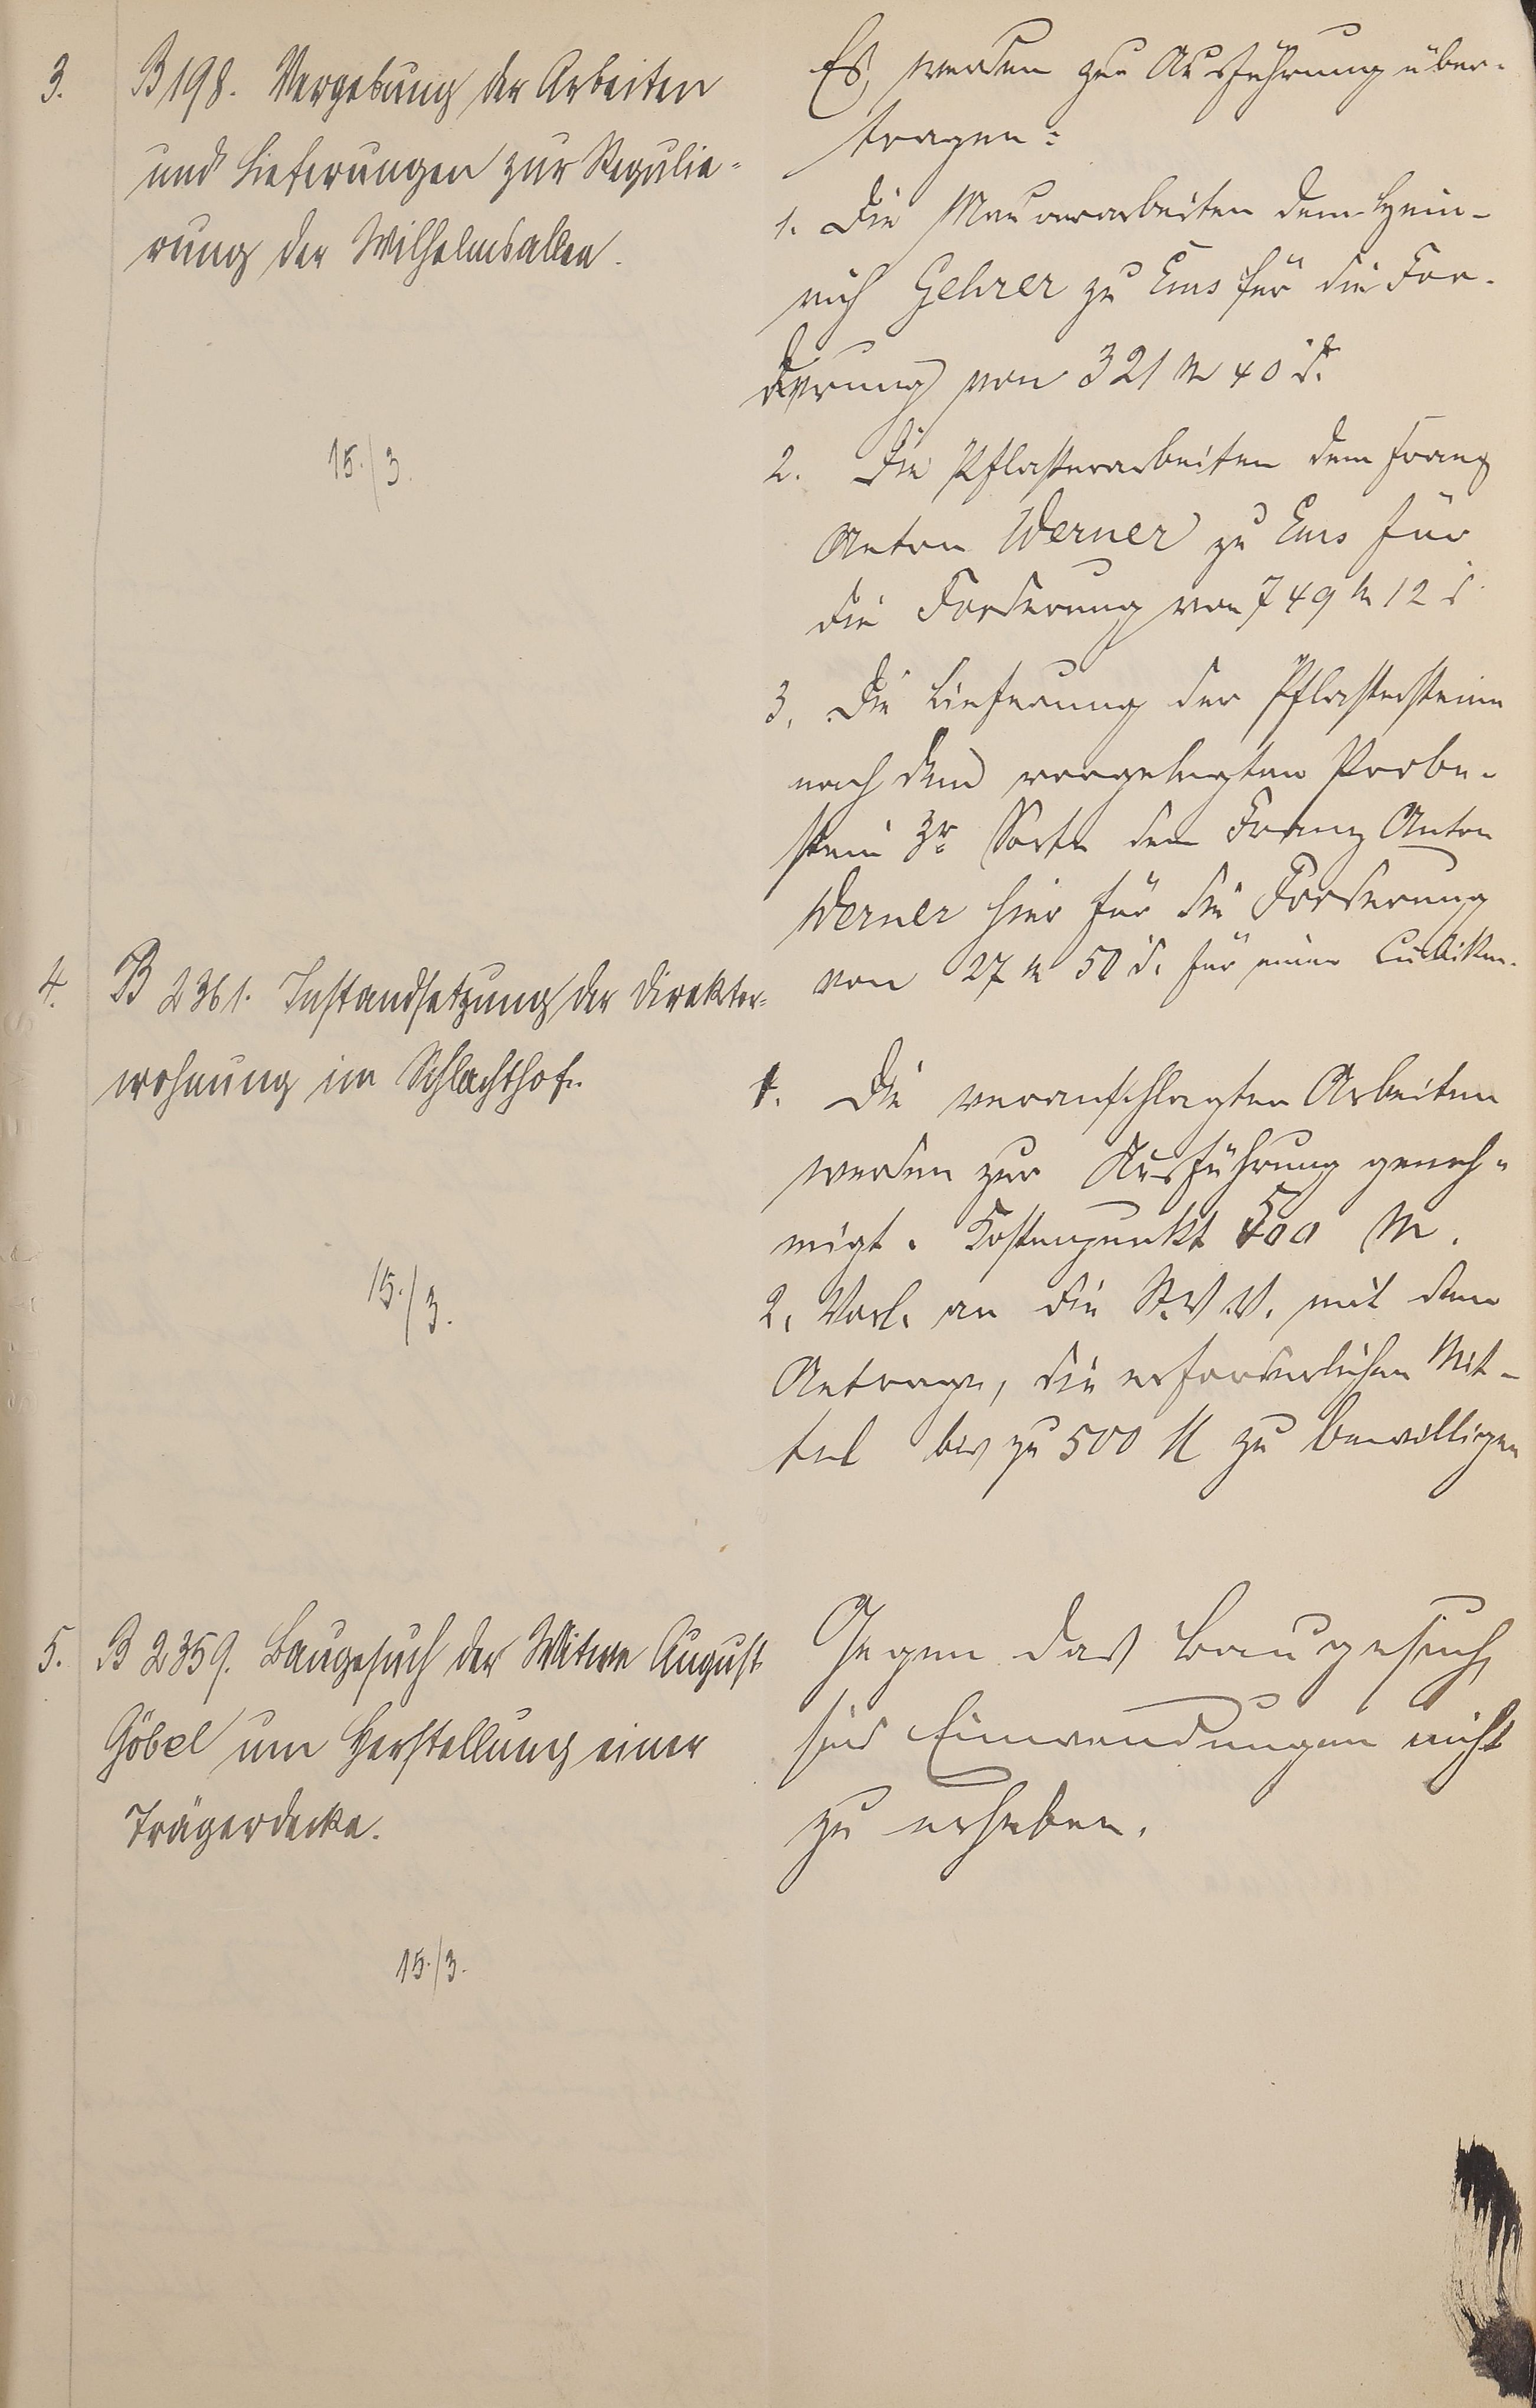 3.
B 198. Vergebung der Arbeiten
und Lieferungen zur Regulie-
rung der Wilhelmsallee.
15./3.
Es werden zur Ausführung über-
tragen:
1. Die Maurerarbeiten dem Hein-
rich Gehrer zu Ems für die For-
derung von 321 M 40 d.
2. Die Pflasterarbeiten dem Franz
Anton Werner zu Ems für
die Forderung von 749 M 12 d
3. Die Lieferung der Pflastersteine
nach dem vorgelegten Probe-
stein 3r Sorte dem Franz Anton
Werner hier für die Forderung
von 27 M 50 d. für einen Cubikm.
4.
B 2361. Instandsetzung der Direktor-
wohnung im Schlachthof.
15./3.
1. Die veranschlagten Arbeiten
werden zur Ausführung geneh-
migt. Kostenpunkt 500 M.
2. Vorl. an die St. V. V. mit dem
Antrage, die erforderlichen Mit-
tel bis zu 500 M zu bewilligen
5.
B 2359. Baugesuch der Witwe August
Göbel um Herstellung einer
Trägerdecke.
15./3.
Gegen das Baugesuch
sind Einwendungen nicht
zu erheben.